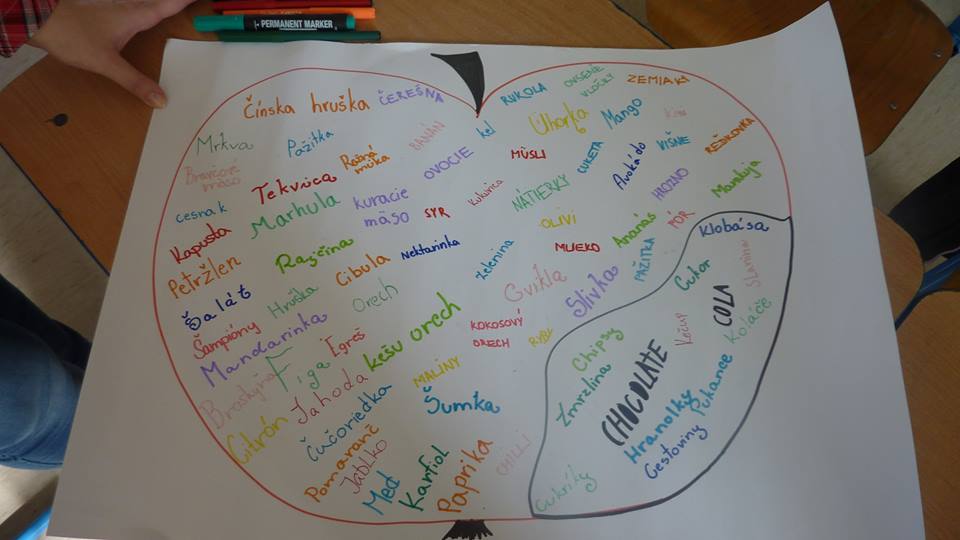 PERMANENT MARKER
Čínska hruška
ČEREŠŇA
RUKOLA
OVSENÉ
VLOČKY
ZEMIAKY
Mrkva
Pažítka
BANÁN
kel
Uhorka
Mango
Kivi
Bravčové
mäso
Ražná
múka
OVOCIE
MÜSLI
CUKETA
Avokádo
VIŠNE
REĎKOVKA
Tekvica
Kukurica
cesnak
Marhuľa
kuracie
mäso
SYR
NÁTIERKY
HROZNO
Marakuja
Kapusta
OLIVI
Ananás
PÓR
Klobása
Petržlen
Rajčina
Cibuľa
Nektarinka
Zelenina
MLIEKO
PAŽITKA
Šalát
Hruška
Orech
Cvikla
Slivka
Cukor
Slanina
Šampióny
Mandarinka
Egreš
kešu orech
KOKOSOVÝ
ORECH
RYBY
Chipsy
Kečup
COLA
Koláče
Broskyňa
Figa
Jahoda
MALINY
Zmrzlina
CHOCOLATE
Pukance
Citrón
Čučoriedka
Šunka
Hranolky
Pomaranč
Jablko
Med
Karfiol
Paprika
CHILLI
Cestoviny
Cukríky